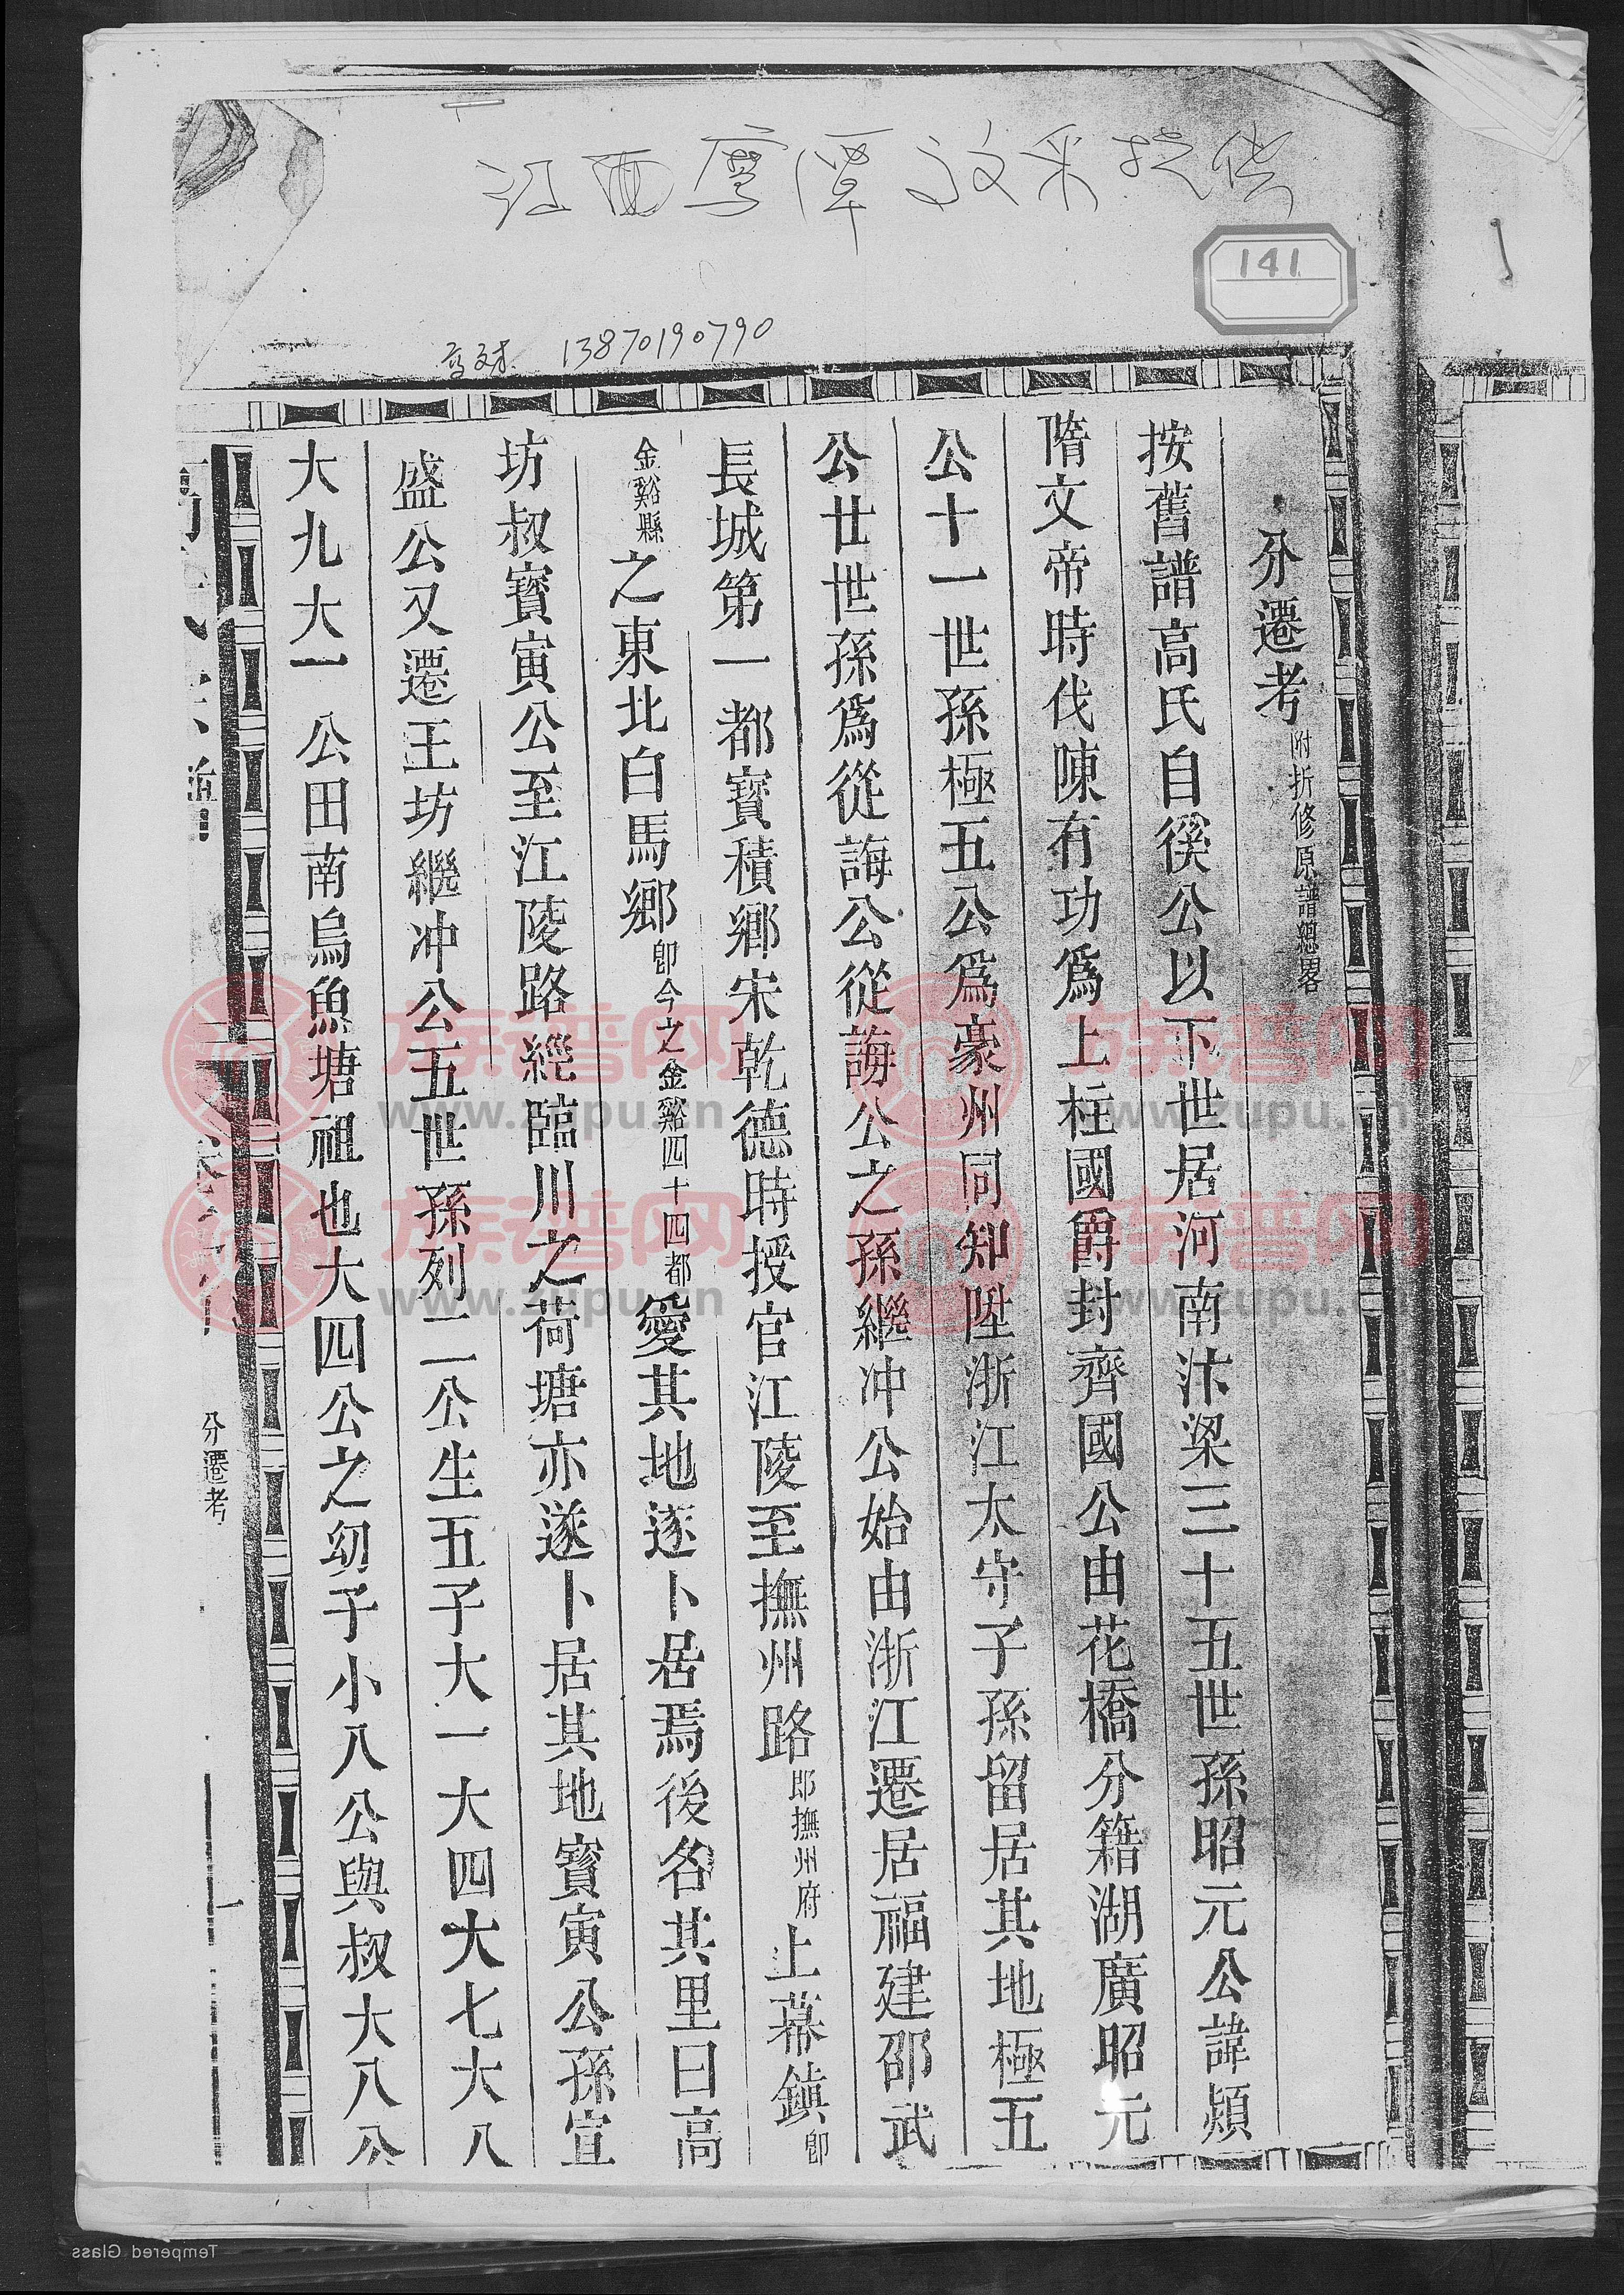 江西鹰潭放采提供
141
高文林 13870190790
分遷考 附折修原譜總畧
按舊譜高氏自徯公以下世居河南汴梁三十五世孫昭元公諱熲
隋文帝時伐陳有功爲上柱國爵封齊國公由花橋分籍湖廣昭元
公十一世孫極五公爲豪州同知陞浙江太守子孫留居其地極五
公廿世孫爲從誨公從誨公之孫繼冲公始由浙江遷居福建邵武
長城第一都寳積鄉宋乾德時授官江陵至撫州路 郎撫州府 上幕鎮 卽
金谿縣 之東北白馬鄉 卽今之金谿四十四都 愛其地逐卜居焉後名其里曰高
坊叔寳寅公至江陵路經臨川之荷塘亦遂卜居其地寳寅公孫宣
盛公又遷王坊繼冲公五世孫列二公生五子大一大四大七大八
大九大一公田南烏魚塘祖也大四公之幼子小八公與叔大八公
分遷考
一
族譜网
www.zupu.cn
族譜网
www.zupu.cn
族譜网
www.zupu.cn
族譜网
www.zupu.cn
Tempered Glass